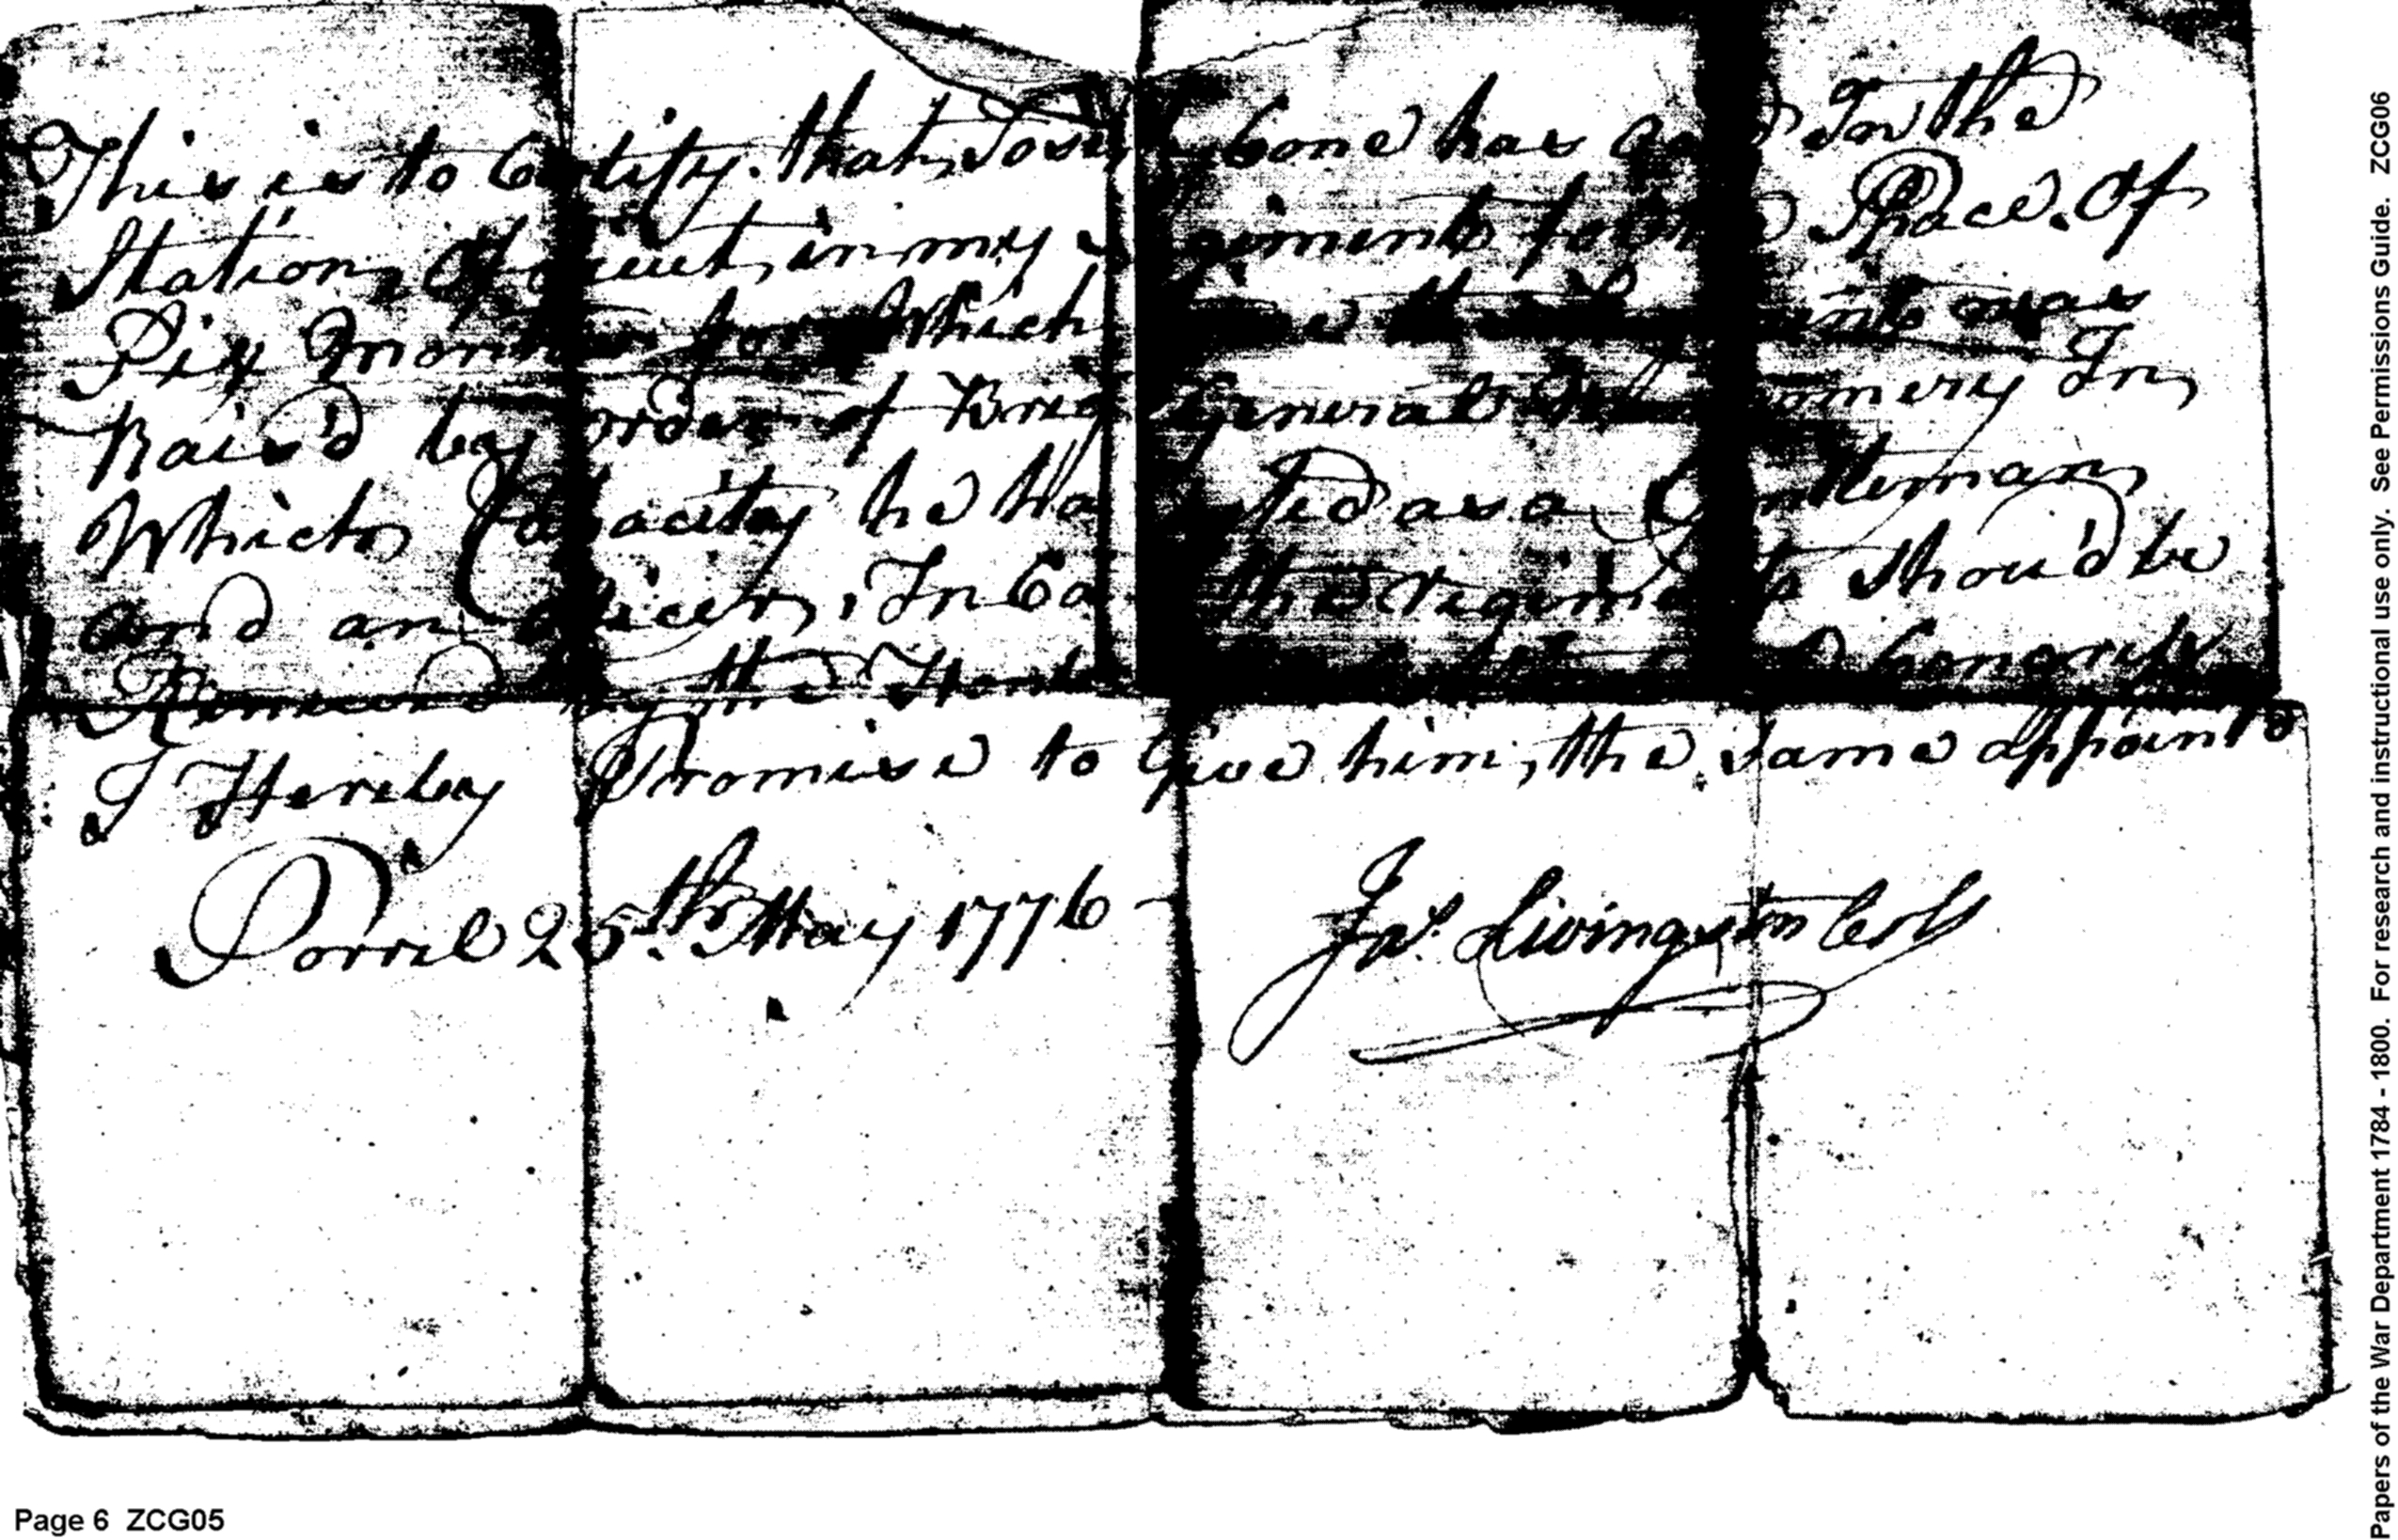 This is to Certify. that Bone has In the
Station, Of in my Regiment for the Space. Of
Six Months for Which was
Rais'd by order of Brig General Montgomery In
Which Capacity he has acted as a Gentleman
and an officer, In Case the Regiment Shou'd be
by the honorific
I Hereby Promise to Give him, the Same appoint
25th May 1776
Jas. Livingston Coll
Page 6 ZCG05
Papers of the War Department 1784 - 1800. For research and instructional use only. See Permissions Guide. ZCG06